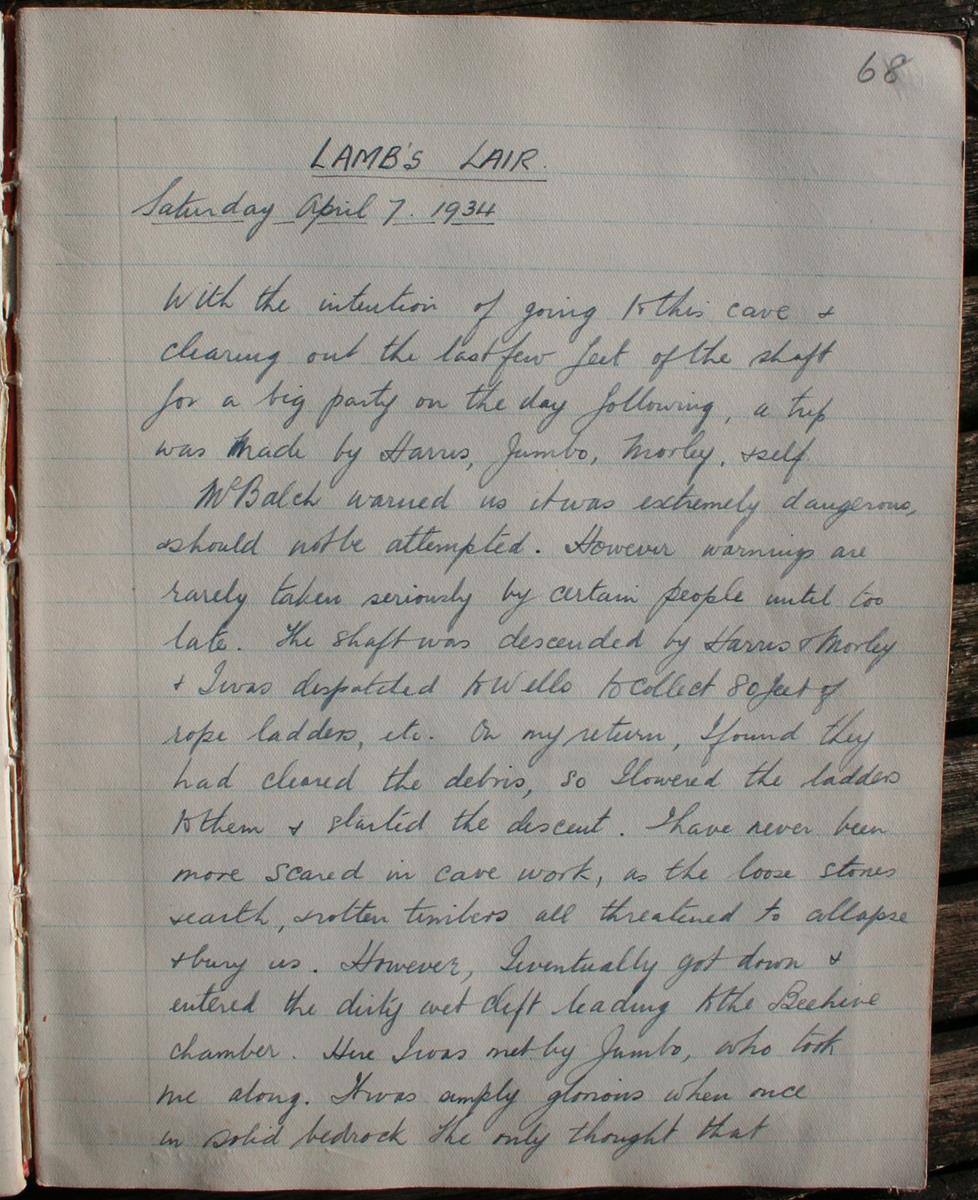 68
LAMB'S LAIR.
Saturday April 7. 1934
With the intention of going to this cave &
clearing out the last few feet of the shaft
for a big party on the day following, a trip
was made by Harris, Jumbo, Morley, & self.
Mr Balch warned us it was extremely dangerous,
& should not be attempted. However warnings are
rarely taken seriously by certain people until too
late. The shaft was descended by Harris & Morley
& I was despatched to Wells to collect 80 feet of
rope ladders, etc. On my return, I found they
had cleared the debris, so I lowered the ladders
to them & started the descent. I have never been
more scared in cave work, as the loose stones
& earth, & rotten timbers all threatened to collapse
& bury us. However, I eventually got down &
entered the dirty wet cleft leading to the Beehive
chamber. Here I was met by Jumbo, who took
me along. It was simply glorious when once
in solid bedrock the only thought that